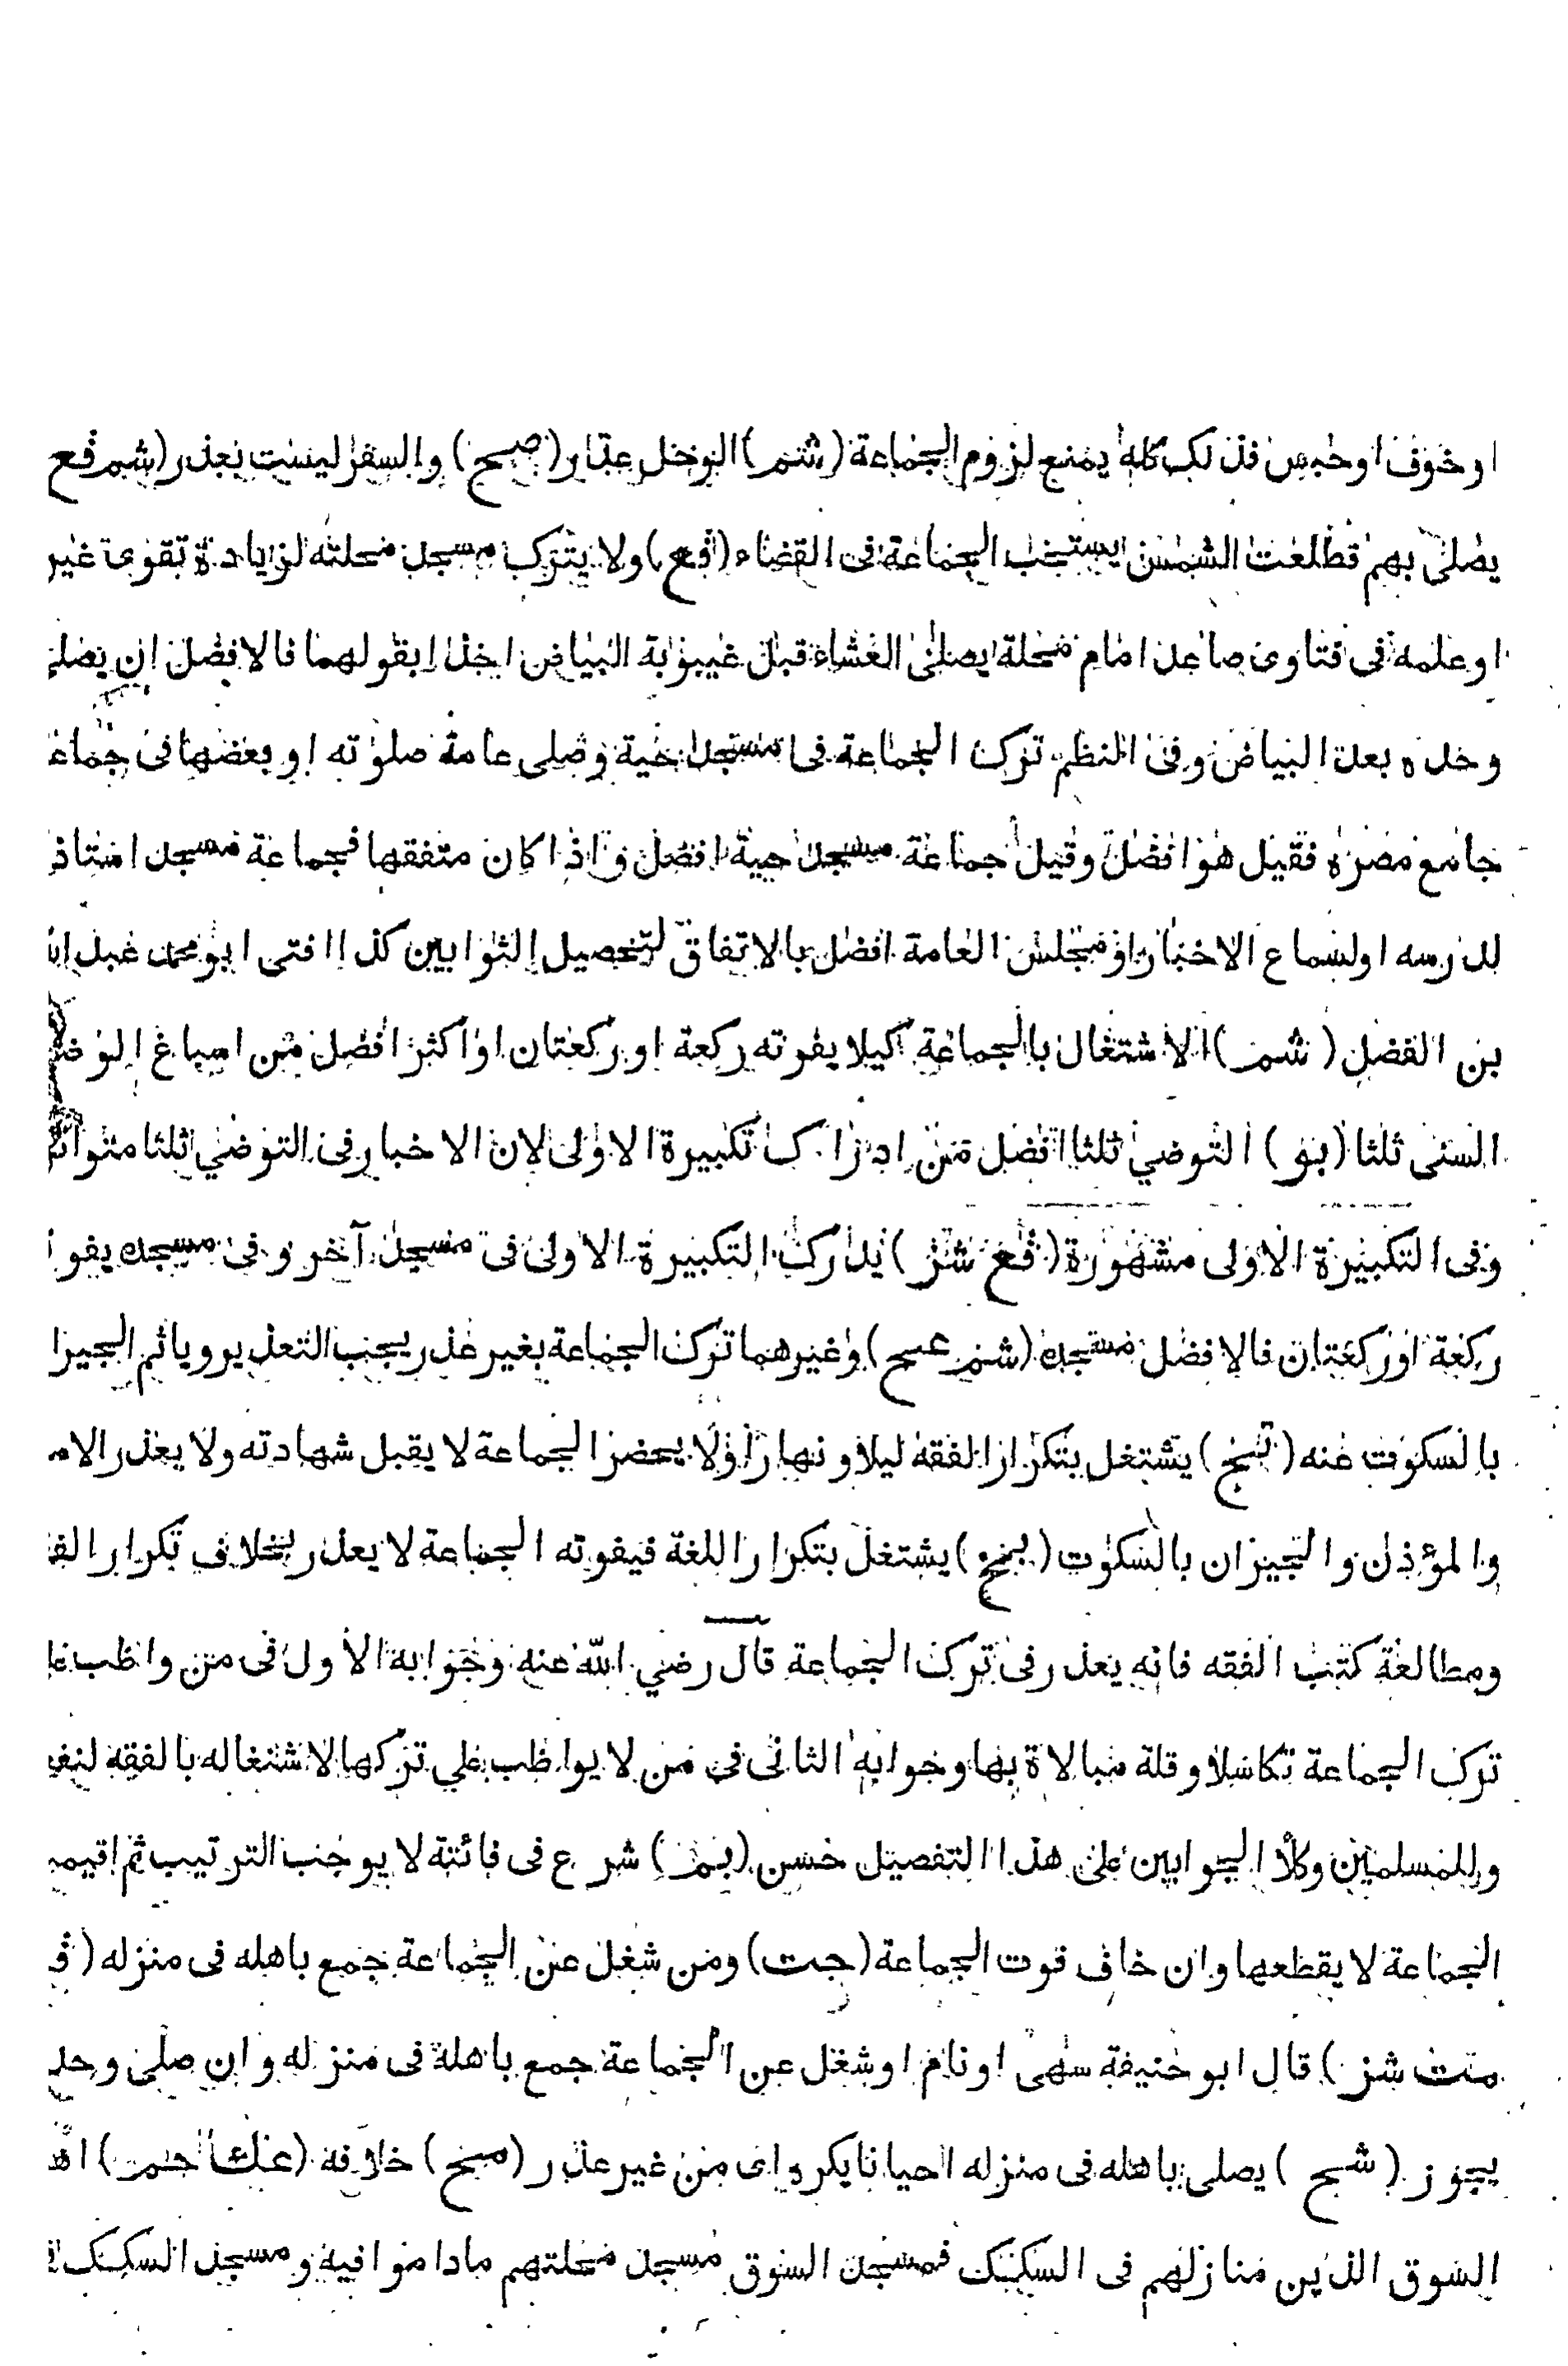 او خوف او حبس فذلك كله يمنع لزوم الجماعة (شم) الوحل عذر (صح) والسفر ليست بعذر (شم قع
يصلى بهم فطلعت الشمس يستحب الجماعة فى القضاء (قع) ولا يترك مسجد محلته لزيادة تقوى غير
او علمه فى فتاوى صاعد امام محلة يصلى العشاء قبل غيبوبة البياض اخذا بقولهما فالافضل ان يصلي
وحده بعد البياض وفى النظم ترك الجماعة فى مسجد حية وصلى عامة صلوته او بعضها فى جماعة
جامع مصره فقيل هو افضل وقيل جماعة مسجد حية افضل واذا كان متفقها فجماعة مسجد استاذ
لدرسه او لسماع الاخبار او مجلس العامة افضل بالاتفاق لتحصيل الثوابين كذا افتى ابو محمد عبد الله
بن الفضل (شم) الاشتغال بالجماعة كيلا يفوته ركعة او ركعتان او اكثر افضل من اسباغ الوضو
السنى ثلثا (بو) التوضي ثلثا افضل من ادراك تكبيرة الاولى لان الاخبار فى التوضي ثلثا متواتر
وفى التكبيرة الاولى مشهورة (قع شز) يدرك التكبيرة الاولى فى مسجد آخر وفى مسجده يفو
ركعة او ركعتان فالافضل مسجده (شم عح) وغيرهما ترك الجماعة بغير عذر يجب التعذير ويأثم الجيرا
بالسكوت عنه (نج) يشتغل بتكرار الفقه ليلا ونهارا ولا يحضر الجماعة لا يقبل شهادته ولا يعذر الام
والمؤذن والجيران بالسكوت (بخ) يشتغل بتكرار اللغة فيفوته الجماعة لا يعذر بخلاف تكرار الفقه
ومطالعة كتب الفقه فانه يعذر فى ترك الجماعة قال رضي الله عنه وجوابه الاول فى من واظب على
ترك الجماعة تكاسلا وقلة مبالاة بها وجوابه الثانى فى من لا يواظب علي تركها لاشتغاله بالفقه لنفع
وللمسلمين وكلا الجوابين على هذا التفصيل حسن (بم) شرع فى فائتة لا يوجب الترتيب ثم اقيمت
الجماعة لا يقطعها وان خاف فوت الجماعة (جت) ومن شغل عن الجماعة جمع باهله فى منزله (ق
مت شز) قال ابو حنيفة سهى او نام او شغل عن الجماعة جمع باهله فى منزله وان صلى وحد
يجوز (شح) يصلى باهله فى منزله احيانا يكره اى من غير عذر (مح) خلافه (عك حم) اهل
السوق الذين منازلهم فى السكك فمسجد السوق مسجد محلتهم ماداموا فيه ومسجد السكك